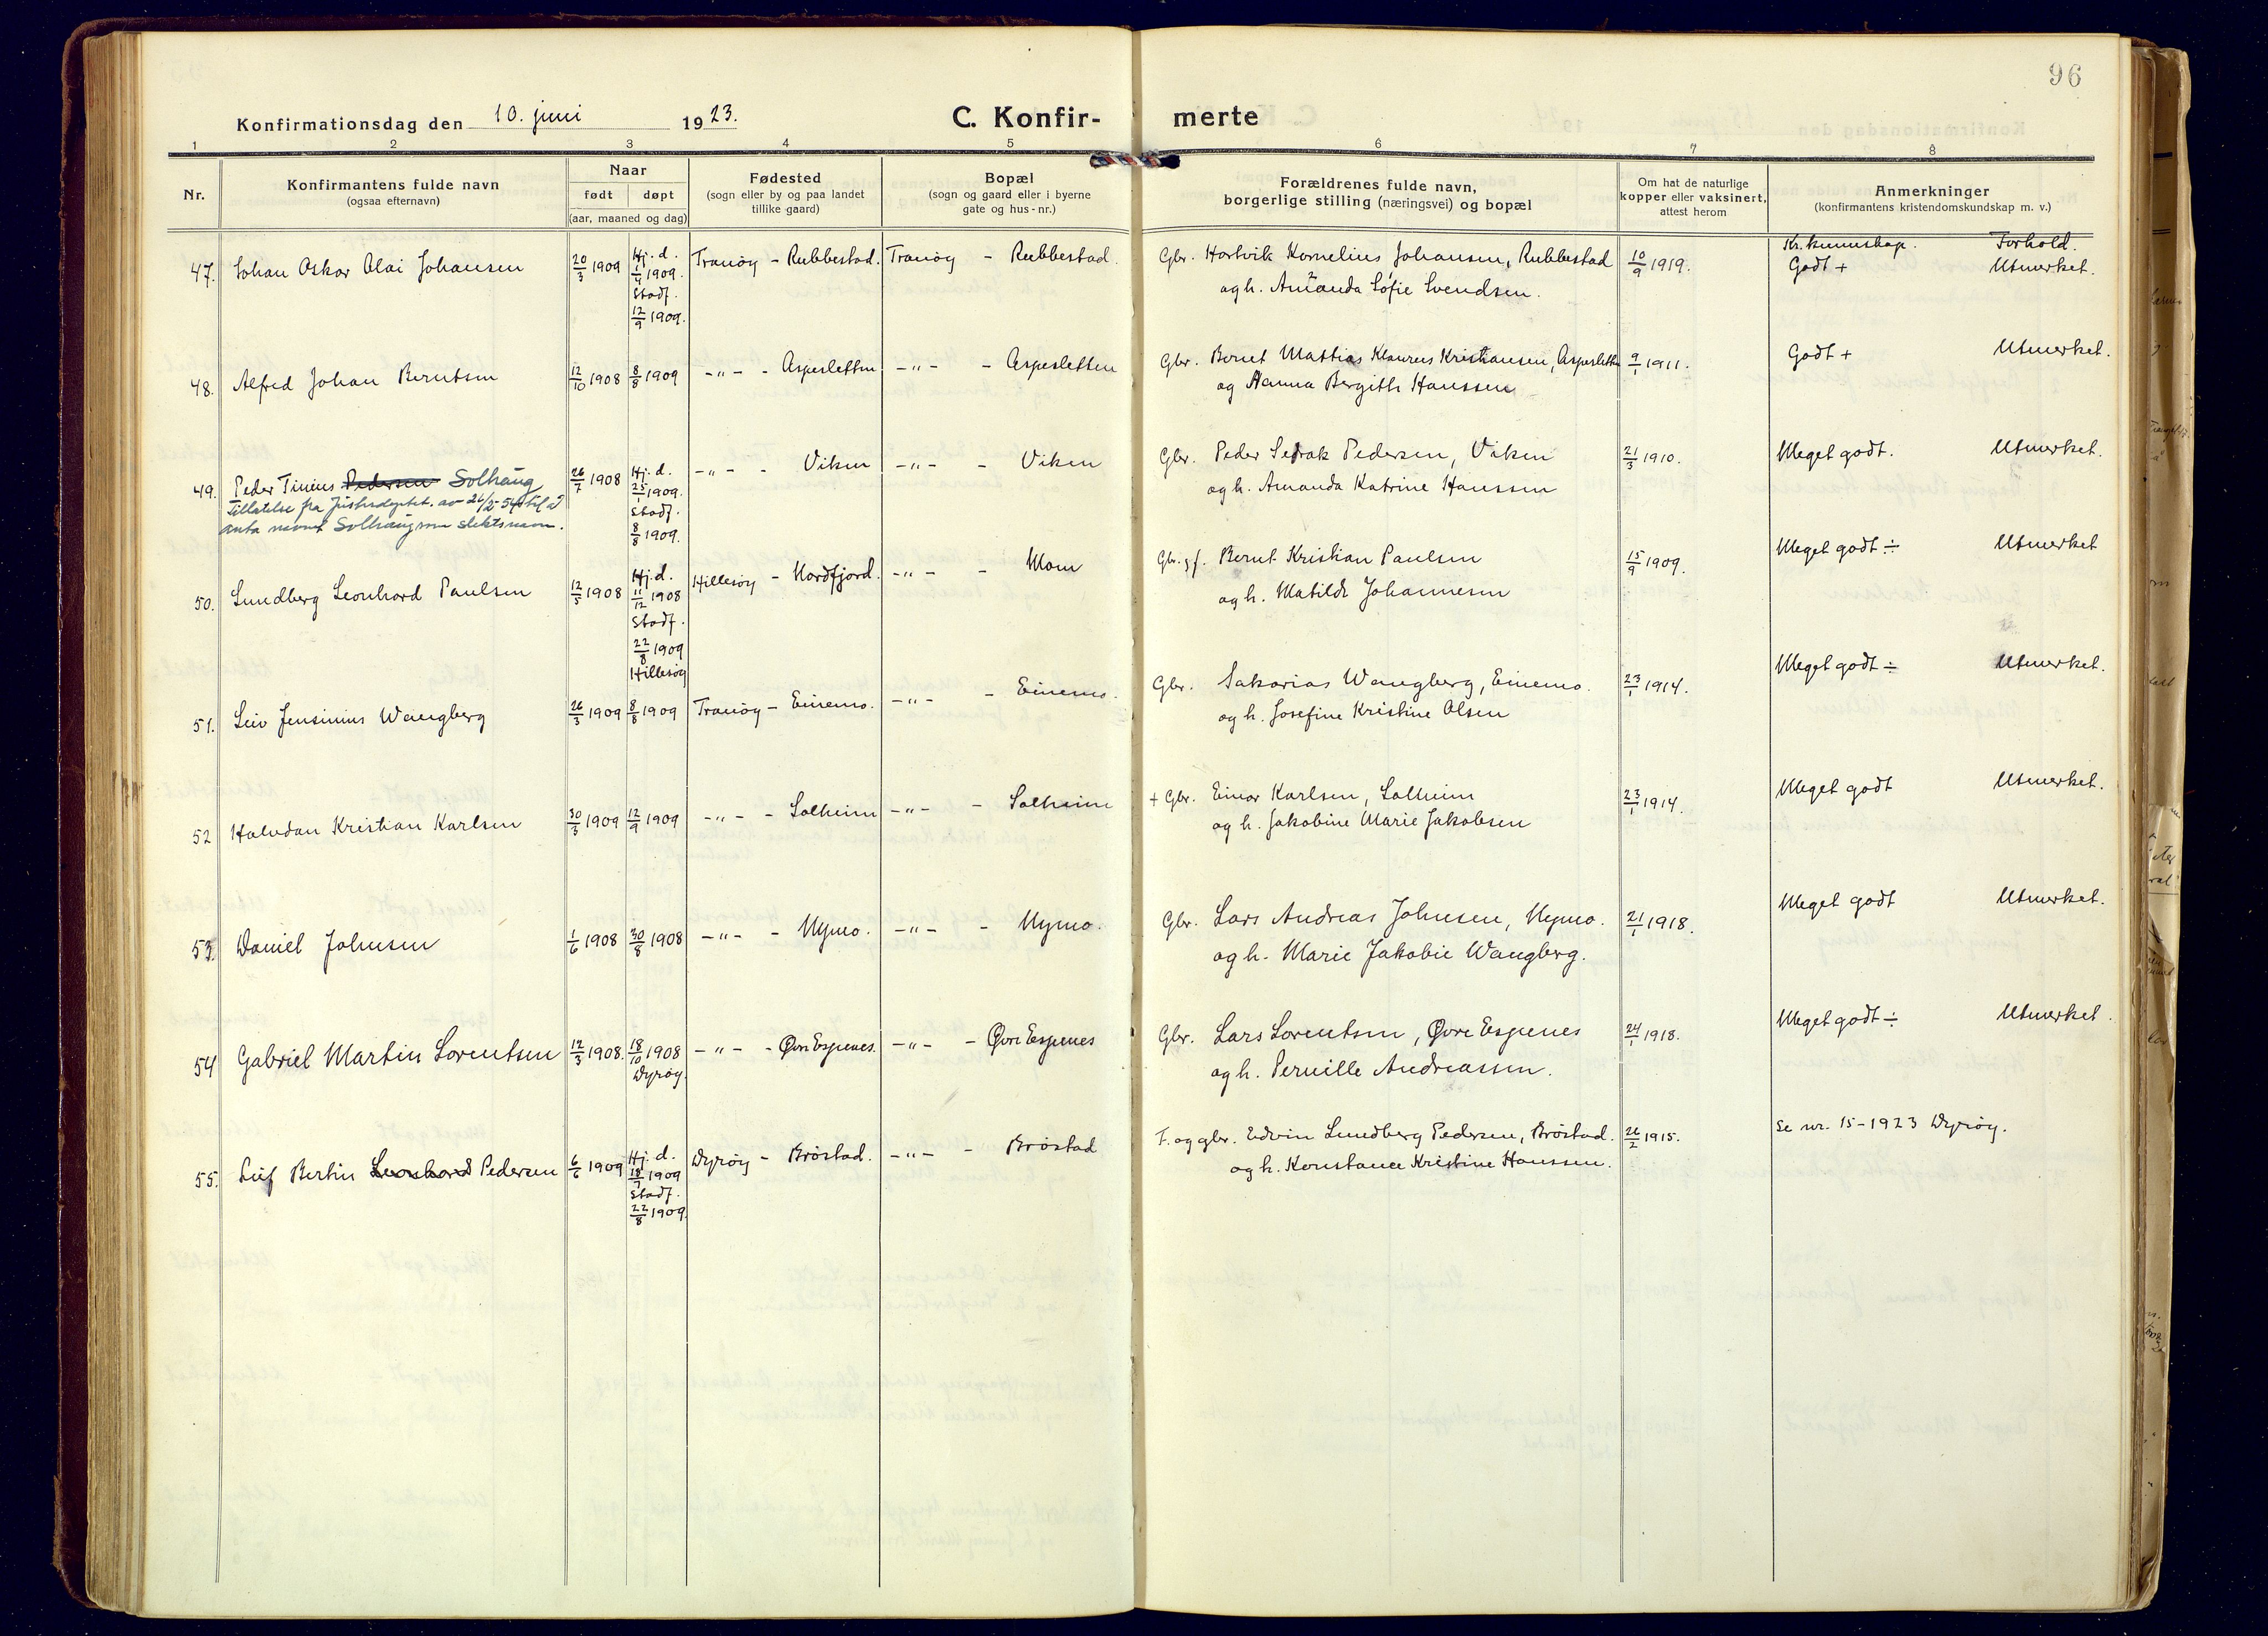 96
Konfirmationsdag den 10. juni 1923.
C. Konfir- merte
1 2 3 4 5 6 7 8
Nr.
Konfirmantens fulde navn
(ogsaa efternavn)
Naar
født døpt
(aar, maaned og dag)
Fødested
(sogn eller by og paa landet
tillike gaard)
Bopæl
(sogn og gaard eller i byerne
gate og hus-nr.)
Forældrenes fulde navn,
borgerlige stilling (næringsvei) og bopæl
Om hat de naturlige
kopper eller vaksinert,
attest herom
Anmerkninger
(konfirmantens kristendomskundskap m. v.)
Kr. kunnskap. Forhold.
47. Johan Oskar Olai Johansen 20/3 1909 Hj. d. 1/4 1909. Stadf. 12/9 1909. Tranøy - Rubbestad. Tranøy - Rubbestad. Gbr. Hartvik Kornelius Johansen, Rubbestad 10/9 1919. Godt + Utmerket.
og h. Amanda Sofie Svendsen.
48. Alfred Johan Berntsen 12/10 1908 8/8 1909 -"- - Aspesletten -"- - Aspesletten Gbr. Bernt Mattias Klaureus Kristiansen, Aspesletten 9/1 1911. Godt + Utmerket.
og Hanna Bergitte Hanssen
49. Peder Tinius Pedersen Solhaug 26/7 1908 Hj. d. 25/1 1909. Stadf. 8/8 1909. -"- - Viken -"- - Viken Gbr. Peder Sedrak Pedersen, Viken 21/3 1910. Meget godt. Utmerket.
Tillatelse fra Justisdeptet. av 26/2-54 til å
anta navnet Solhaug som slektsnavn.
og h. Amanda Katrine Hanssen
50. Lundberg Leonhard Paulsen 12/5 1908 Hj. d. 11/12 1908 Stadf. 22/8 1909 Hillesøy Hillesøy - Mordfjord. -"- - Moen Gbr. g f. Bernt Kristian Paulsen 15/9 1909. Meget godt ÷ Utmerket
og h. Matilde Johannesen
51. Leiv Jensinius Wangberg 26/3 1909 8/8 1909 Tranøy - Einemo. -"- - Einemo. Gbr. Sakarias Wangberg, Einemo. 23/1 1914. Meget godt ÷ Utmerket.
og h. Josefine Kristine Olsen
52 Halvdan Kristian Karlsen 30/3 1909 12/9 1909 -"- - Solheim -"- - Solheim + Gbr. Einar Karlsen, Solheim 23/1 1914. Meget godt Utmerket.
og h. Jakobine Marie Jakobsen
53. Daniel Johnsen 1/6 1908 30/8 1908 -"- - Nymo. -"- - Nymo. Gbr. Lars Andreas Johnsen, Nymo. 21/1 1918. Meget godt Utmerket.
og h. Marie Jakobie Wangberg.
54 Gabriel Martin Lorentsen 12/3 1908. 18/10 1908 Dyrøy. -"- - Øvre Espenes. -"- - Øvre Espenes Gbr. Lars Lorentsen, Øvre Espenes 24/1 1918. Meget godt ÷ Utmerket.
og h. Pernille Andreassen.
55. Leif Bertin Leonhard Pedersen 6/6 1909 Hj. d. 18/7 1909 Stadf. 22/8 1909. Dyrøy - Brøstad. -"- - Brøstad F. og gbr. Edvin Lundberg Pedersen, Brøstad. 26/2 1915. Se nr. 15-1923 Dyrøy.
og h. Konstance Kristine Hanssen.